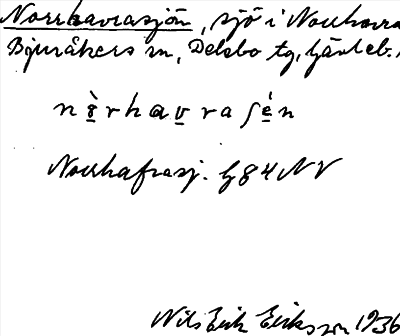 Norrhavrasjön, sjö i Norrhavra
Bjuråkers sn, Delsbo tg, Gävleb. l
nò̤rhav̤raʃé̤n
Norrhafrasj. G84NV
Nils Erik Eriksson 1936